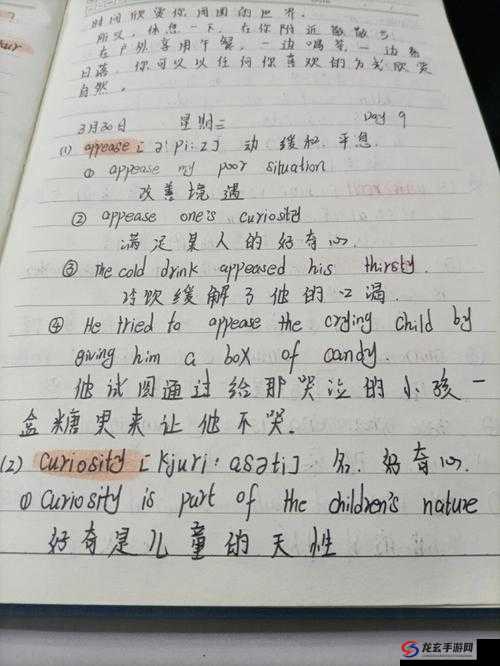 时间欣赏你周围的世界.
所以, 休息一下, 在你附近散散步
在户外享用午餐, 一边喝茶一边看
日落, 你可以以任何你喜欢的方式欣赏
自然.
3月30日 星期三 Day 9
(1) appease [ə'pi:z] 动 缓和, 平息.
① appease my poor situation
改善境遇
② appease one's curiosity
满足某人的好奇心.
③ The cold drink appeased his thirsty.
冷饮缓解了他的口渴.
④ He tried to appease the crying child by
giving him a box of candy.
他试图通过给那哭泣的小孩一
盒糖果来让他不哭.
(2) curiosity [kjuri:asəti] 名. 好奇心.
① Curiosity is part of the children's nature
好奇是儿童的天性
龙玄手游网